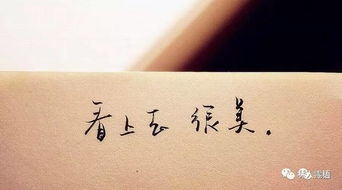 看上去 張美。